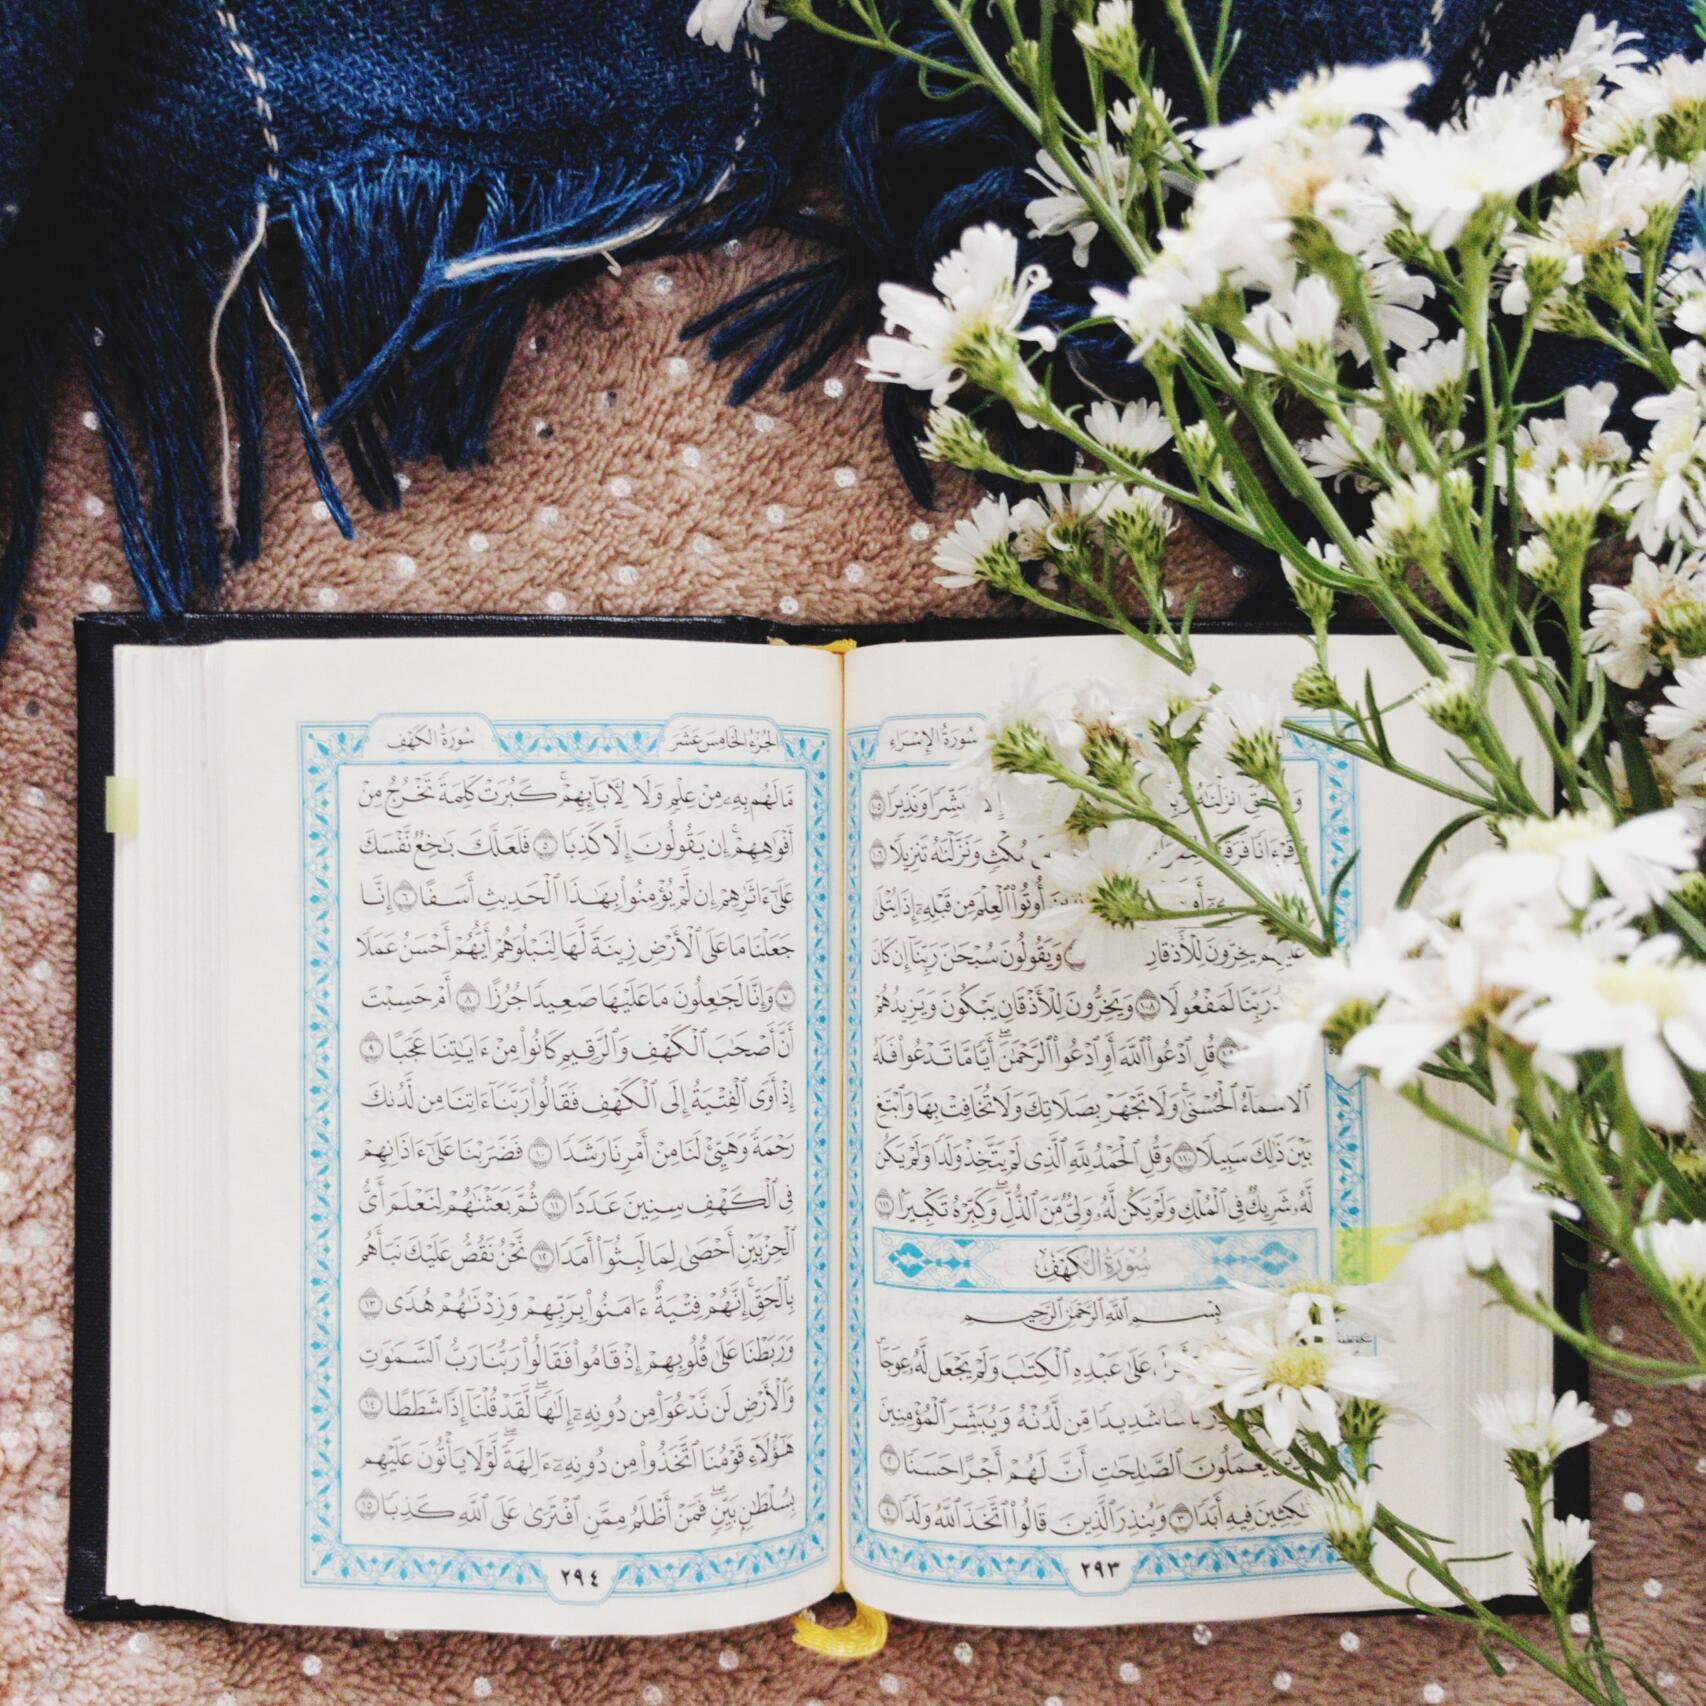 سُورَةُ الإِسْرَاءِ
أَنزَلْنَٰهُ إِلَّا مُبَشِّرًا وَنَذِيرًا ١٠٥
مُكْثٍ وَنَزَّلْنَٰهُ تَنزِيلًا ١٠٦
أُوتُوا۟ ٱلْعِلْمَ مِن قَبْلِهِۦٓ إِذَا يُتْلَىٰ
عَلَيْهِمْ يَخِرُّونَ لِلْأَذْقَانِ وَيَقُولُونَ سُبْحَٰنَ رَبِّنَآ إِن كَانَ
رَبِّنَا لَمَفْعُولًا ١٠٨ وَيَخِرُّونَ لِلْأَذْقَانِ يَبْكُونَ وَيَزِيدُهُمْ
قُلِ ٱدْعُوا۟ ٱللَّهَ أَوِ ٱدْعُوا۟ ٱلرَّحْمَٰنَ ۖ أَيًّا مَّا تَدْعُوا۟ فَلَهُ
ٱلْأَسْمَآءُ ٱلْحُسْنَىٰ ۚ وَلَا تَجْهَرْ بِصَلَاتِكَ وَلَا تُخَافِتْ بِهَا وَٱبْتَغِ
بَيْنَ ذَٰلِكَ سَبِيلًا ١١٠ وَقُلِ ٱلْحَمْدُ لِلَّهِ ٱلَّذِى لَمْ يَتَّخِذْ وَلَدًا وَلَمْ يَكُن
لَّهُۥ شَرِيكٌ فِى ٱلْمُلْكِ وَلَمْ يَكُن لَّهُۥ وَلِىٌّ مِّنَ ٱلذُّلِّ ۖ وَكَبِّرْهُ تَكْبِيرًۢا ١١١
سُورَةُ الكَهْفِ
بِسْمِ ٱللَّهِ ٱلرَّحْمَٰنِ ٱلرَّحِيمِ
عَلَىٰ عَبْدِهِ ٱلْكِتَٰبَ وَلَمْ يَجْعَل لَّهُۥ عِوَجَا ۜ
شَدِيدًا مِّن لَّدُنْهُ وَيُبَشِّرَ ٱلْمُؤْمِنِينَ
يَعْمَلُونَ ٱلصَّٰلِحَٰتِ أَنَّ لَهُمْ أَجْرًا حَسَنًا ٢
مَّٰكِثِينَ فِيهِ أَبَدًا ٣ وَيُنذِرَ ٱلَّذِينَ قَالُوا۟ ٱتَّخَذَ ٱللَّهُ وَلَدًا ٤
٢٩٣
الجُزْءُ الخَامِسَ عَشَرَ
سُورَةُ الكَهْفِ
مَّا لَهُم بِهِۦ مِنْ عِلْمٍ وَلَا لِءَابَآئِهِمْ ۚ كَبُرَتْ كَلِمَةً تَخْرُجُ مِنْ
أَفْوَٰهِهِمْ ۚ إِن يَقُولُونَ إِلَّا كَذِبًا ٥ فَلَعَلَّكَ بَٰخِعٌ نَّفْسَكَ
عَلَىٰٓ ءَاثَٰرِهِمْ إِن لَّمْ يُؤْمِنُوا۟ بِهَٰذَا ٱلْحَدِيثِ أَسَفًا ٦ إِنَّا
جَعَلْنَا مَا عَلَى ٱلْأَرْضِ زِينَةً لَّهَا لِنَبْلُوَهُمْ أَيُّهُمْ أَحْسَنُ عَمَلًا
٧ وَإِنَّا لَجَٰعِلُونَ مَا عَلَيْهَا صَعِيدًا جُرُزًا ٨ أَمْ حَسِبْتَ
أَنَّ أَصْحَٰبَ ٱلْكَهْفِ وَٱلرَّقِيمِ كَانُوا۟ مِنْ ءَايَٰتِنَا عَجَبًا ٩
إِذْ أَوَى ٱلْفِتْيَةُ إِلَى ٱلْكَهْفِ فَقَالُوا۟ رَبَّنَآ ءَاتِنَا مِن لَّدُنكَ
رَحْمَةً وَهَيِّئْ لَنَا مِنْ أَمْرِنَا رَشَدًا ١٠ فَضَرَبْنَا عَلَىٰٓ ءَاذَانِهِمْ
فِى ٱلْكَهْفِ سِنِينَ عَدَدًا ١١ ثُمَّ بَعَثْنَٰهُمْ لِنَعْلَمَ أَىُّ
ٱلْحِزْبَيْنِ أَحْصَىٰ لِمَا لَبِثُوٓا۟ أَمَدًا ١٢ نَّحْنُ نَقُصُّ عَلَيْكَ نَبَأَهُم
بِٱلْحَقِّ ۚ إِنَّهُمْ فِتْيَةٌ ءَامَنُوا۟ بِرَبِّهِمْ وَزِدْنَٰهُمْ هُدًى ١٣
وَرَبَطْنَا عَلَىٰ قُلُوبِهِمْ إِذْ قَامُوا۟ فَقَالُوا۟ رَبُّنَا رَبُّ ٱلسَّمَٰوَٰتِ
وَٱلْأَرْضِ لَن نَّدْعُوَا۟ مِن دُونِهِۦٓ إِلَٰهًا ۖ لَّقَدْ قُلْنَآ إِذًا شَطَطًا ١٤
هَٰٓؤُلَآءِ قَوْمُنَا ٱتَّخَذُوا۟ مِن دُونِهِۦٓ ءَالِهَةً ۖ لَّوْلَا يَأْتُونَ عَلَيْهِم
بِسُلْطَٰنٍۭ بَيِّنٍ ۖ فَمَنْ أَظْلَمُ مِمَّنِ ٱفْتَرَىٰ عَلَى ٱللَّهِ كَذِبًا ١٥
٢٩٤